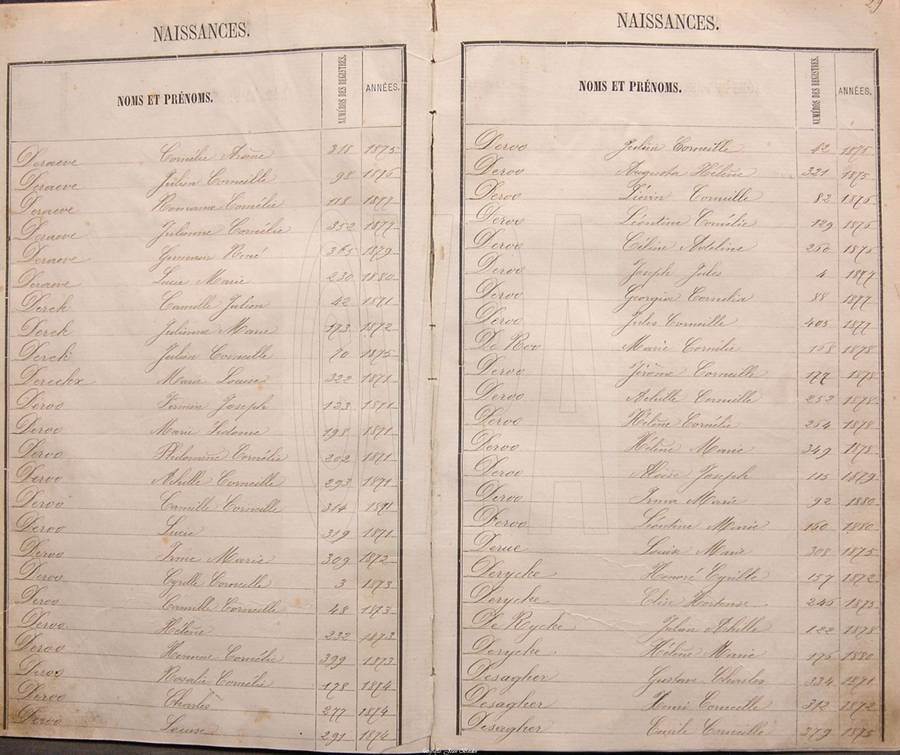 NAISSANCES.
NOMS ET PRÉNOMS. NUMÉROS DES REGISTRES. ANNÉES.
Deraeve Cornélie Irène 218 1875
Deraeve Julien Corneille 98 1876
Deraeve Romanie Cornélie 118 1877
Deraeve Julienne Cornélie 352 1877
Deraeve Germain René 365 1879
Deraeve Lucie Marie 230 1880
Derck Camille Julien 42 1871
Derck Julienne Marie 173 1872
Derck Julien Corneille 70 1875
Dereckx Maria Louise 322 1871
Deroo Firmin Joseph 123 1871
Deroo Marie Sidonie 198 1871
Deroo Philomène Cornélie 202 1871
Deroo Achille Corneille 293 1871
Deroo Camille Corneille 314 1871
Deroo Lucie 319 1871
Deroo Irma Marie 309 1872
Deroo Cyrille Corneille 3 1873
Deroo Camille Corneille 48 1873
Deroo Hélène 232 1873
Deroo Cornélie 399 1873
Deroo Rosalie Cornélie 178 1874
Deroo Charles 277 1874
Deroo Louise 291 1874
29
NAISSANCES.
NOMS ET PRÉNOMS. NUMÉROS DES REGISTRES. ANNÉES.
Deroo Julien Corneille 42 1875
Deroo Augusta Hélène 321 1875
Deroo Liévin Corneille 82 1876
Deroo Léontine Cornélie 129 1876
Deroo Céline Adeline 260 1876
Deroo Joseph Jules 4 1877
Deroo Georgia Cornelia 88 1877
Deroo Jules Corneille 405 1877
De Roo Marie Cornélie 168 1878
Deroo Jérôme Corneille 177 1878
Deroo Achille Corneille 252 1878
Deroo Hélène Cornélie 254 1878
Deroo Hélène Marie 349 1878
Deroo Aloïse Joseph 115 1879
Deroo Irma Marie 92 1880
Deroo Léontine Marie 160 1880
Derue Louise Marie 308 1875
Derycke Honoré Cyrille 157 1872
Derycke Elise Hortense 246 1875
De Rycke Julien Achille 122 1878
Derycke Hélène Marie 176 1880
Desagher Gustave Charles 334 1871
Desagher Henri Corneille 312 1872
Desagher Emile Corneille 379 1875